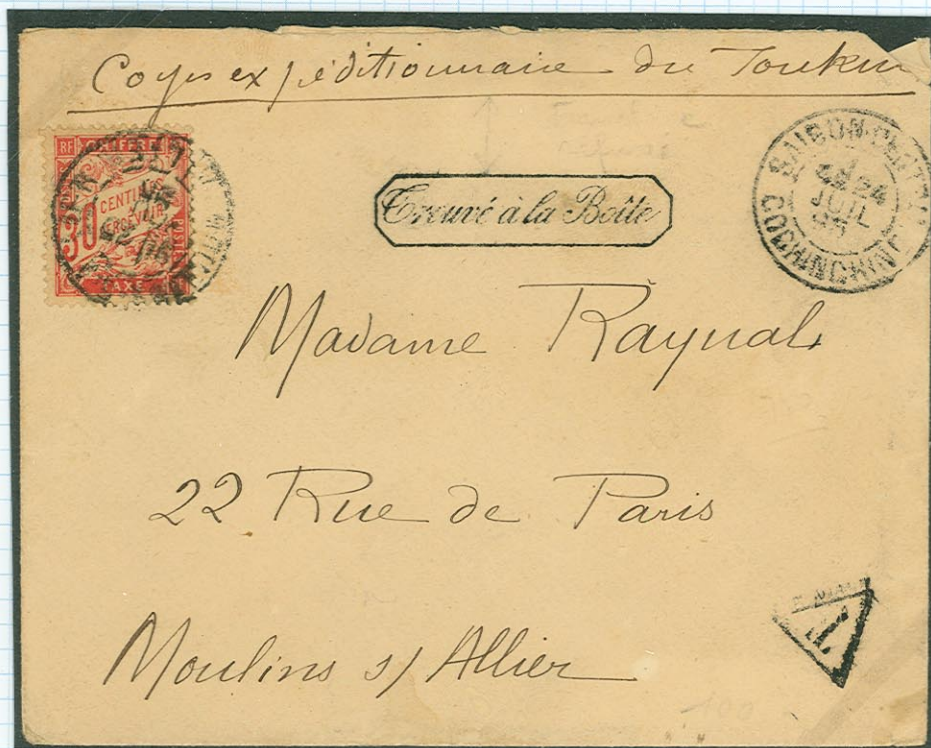 Corps expéditionnaire du Tonkin
RF CHIFFRE
30 CENTIMES
À PERCEVOIR
TAXE
Trouvé à la Boîte
SAIGON-CENTRAL
24
JUIL
COCHINCHINE
Madame Raynal
22 Rue de Paris
T
Moulins s/ Allier
100